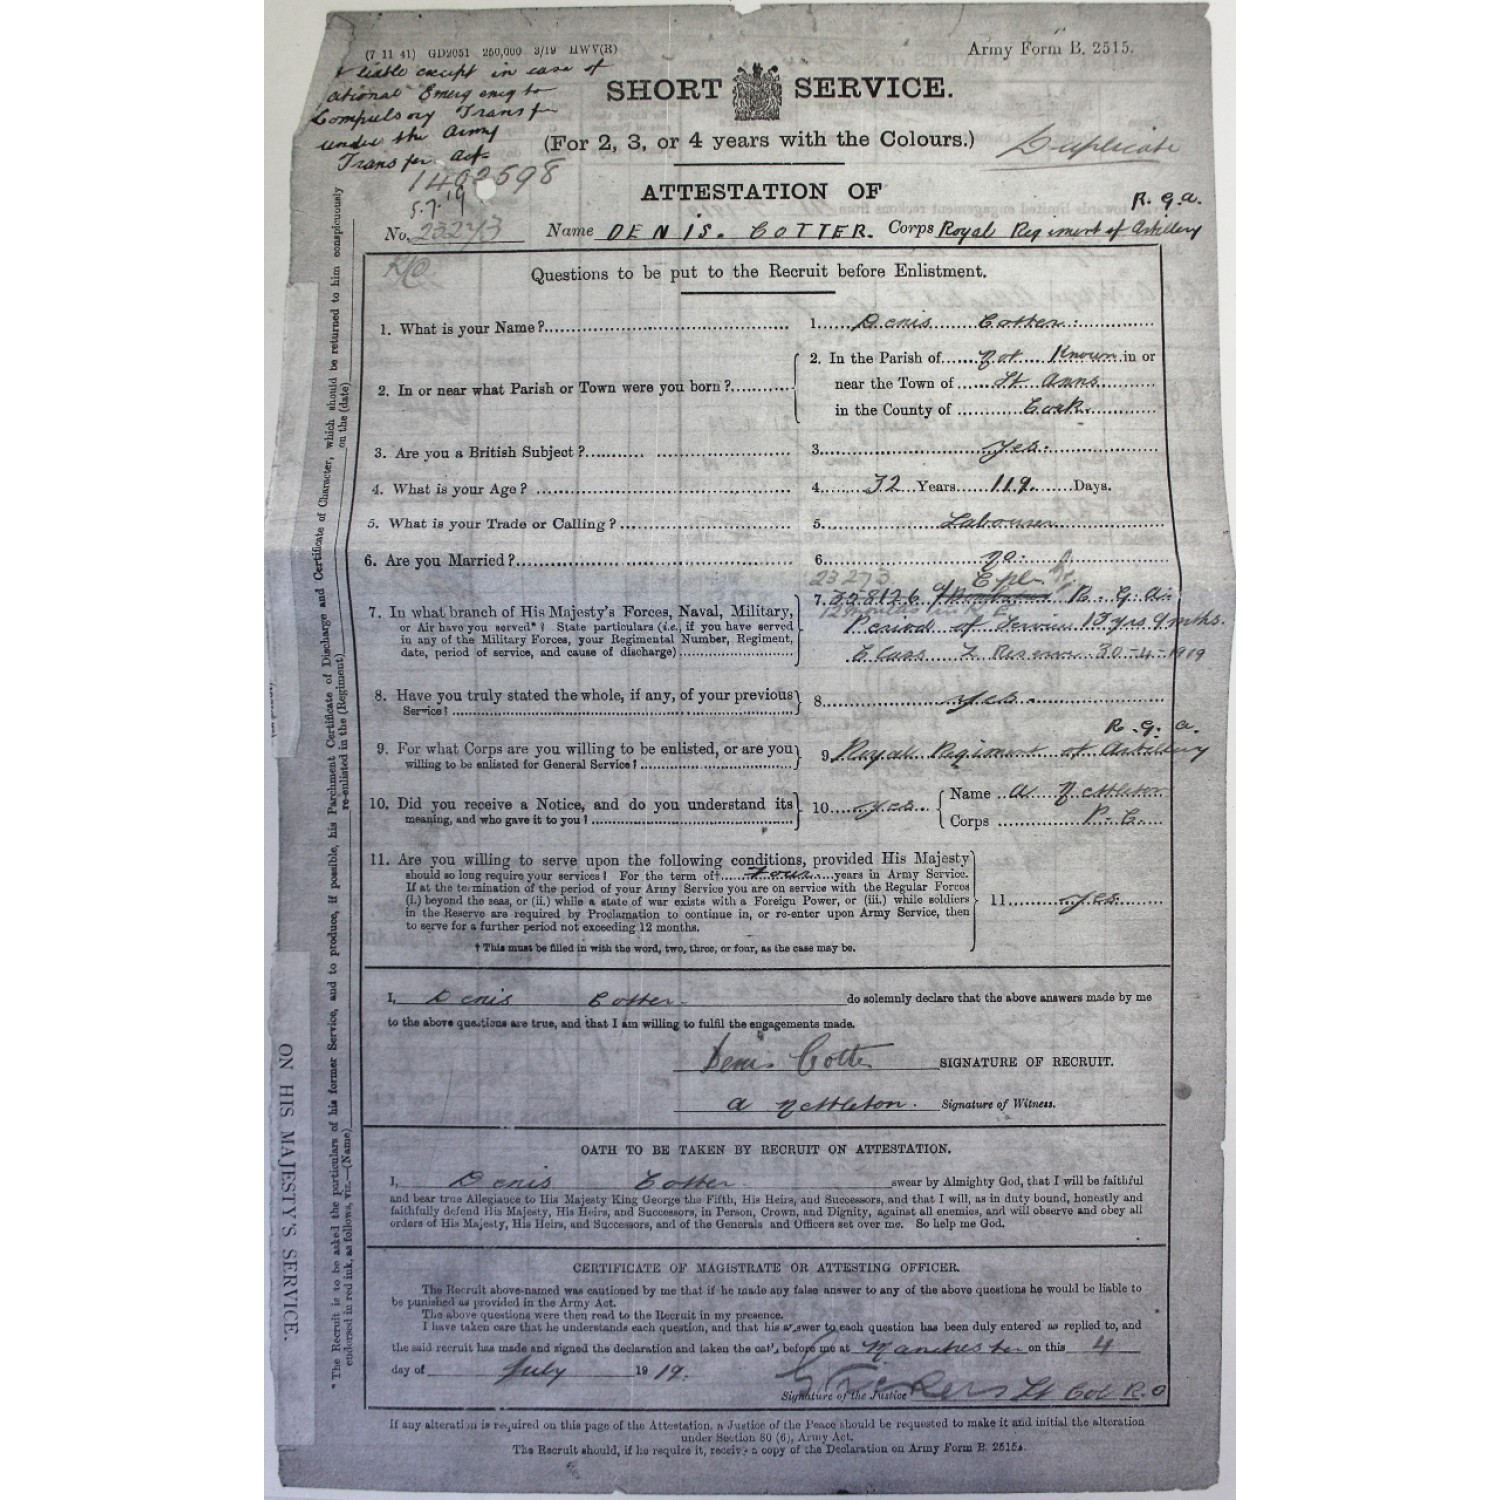 (7 11 41) GD2051 250,000 3/19 HWV(R)
Army Form B. 2515.
liable except in case of
ational Emergency to
Compulsory Transfer
under the Army
Transfer Act
SHORT SERVICE.
(For 2, 3, or 4 years with the Colours.)
Duplicate
ATTESTATION OF
1402598
5.7.19
R.G.A.
No. 23273 Name DENIS. COTTER. Corps Royal Regiment of Artillery
Questions to be put to the Recruit before Enlistment.
1. What is your Name? 1. Denis Cotter.
2. In or near what Parish or Town were you born? 2. In the Parish of Not Known in or
near the Town of St Anns
in the County of Cork
3. Are you a British Subject? 3. Yes.
4. What is your Age? 4. 32 Years 119 Days.
5. What is your Trade or Calling? 5. Labourer
6. Are you Married? 6. No.
23273 Cpl
7. In what branch of His Majesty's Forces, Naval, Military, 7. 358126 R.G.A.
12 months in R.E.
or Air have you served*? State particulars (i.e., if you have served Period of Service 13 yrs 9 mths.
in any of the Military Forces, your Regimental Number, Regiment,
date, period of service, and cause of discharge) Class Z Reserve 30-4-1919
8. Have you truly stated the whole, if any, of your previous 8. Yes.
Service?
R.G.A.
9. For what Corps are you willing to be enlisted, or are you 9. Royal Regiment of Artillery
willing to be enlisted for General Service?
10. Did you receive a Notice, and do you understand its 10. Yes. Name A Nettleton
meaning, and who gave it to you? Corps
11. Are you willing to serve upon the following conditions, provided His Majesty
should so long require your services? For the term of† Four years in Army Service.
If at the termination of the period of your Army Service you are on service with the Regular Forces
(i.) beyond the seas, or (ii.) while a state of war exists with a Foreign Power, or (iii.) while soldiers 11. Yes.
in the Reserve are required by Proclamation to continue in, or re-enter upon Army Service, then
to serve for a further period not exceeding 12 months.
† This must be filled in with the word, two, three, or four, as the case may be.
I, Denis Cotter do solemnly declare that the above answers made by me
to the above questions are true, and that I am willing to fulfil the engagements made.
Denis Cotter SIGNATURE OF RECRUIT.
A Nettleton. Signature of Witness.
OATH TO BE TAKEN BY RECRUIT ON ATTESTATION.
I, Denis Cotter swear by Almighty God, that I will be faithful
and bear true Allegiance to His Majesty King George the Fifth, His Heirs, and Successors, and that I will, as in duty bound, honestly and
faithfully defend His Majesty, His Heirs, and Successors, in Person, Crown, and Dignity, against all enemies, and will observe and obey all
orders of His Majesty, His Heirs, and Successors, and of the Generals and Officers set over me. So help me God.
CERTIFICATE OF MAGISTRATE OR ATTESTING OFFICER.
The Recruit above-named was cautioned by me that if he made any false answer to any of the above questions he would be liable to
be punished as provided in the Army Act.
The above questions were then read to the Recruit in my presence.
I have taken care that he understands each question, and that his answer to each question has been duly entered as replied to, and
the said recruit has made and signed the declaration and taken the oath before me at Manchester on this 4
day of July 19 19.
Signature of the Justice Lt Col R.O
If any alteration is required on this page of the Attestation, a Justice of the Peace should be requested to make it and initial the alteration
under Section 80 (6), Army Act.
The Recruit should, if he require it, receive a copy of the Declaration on Army Form B. 2515A.
* The Recruit is to be asked the particulars of his former Service, and to produce, if possible, his Parchment Certificate of Discharge and Certificate of Character, which should be returned to him conspicuously
endorsed in red ink, as follows, viz.—(Name) re-enlisted in the (Regiment) on the (date)
ON HIS MAJESTY'S SERVICE.